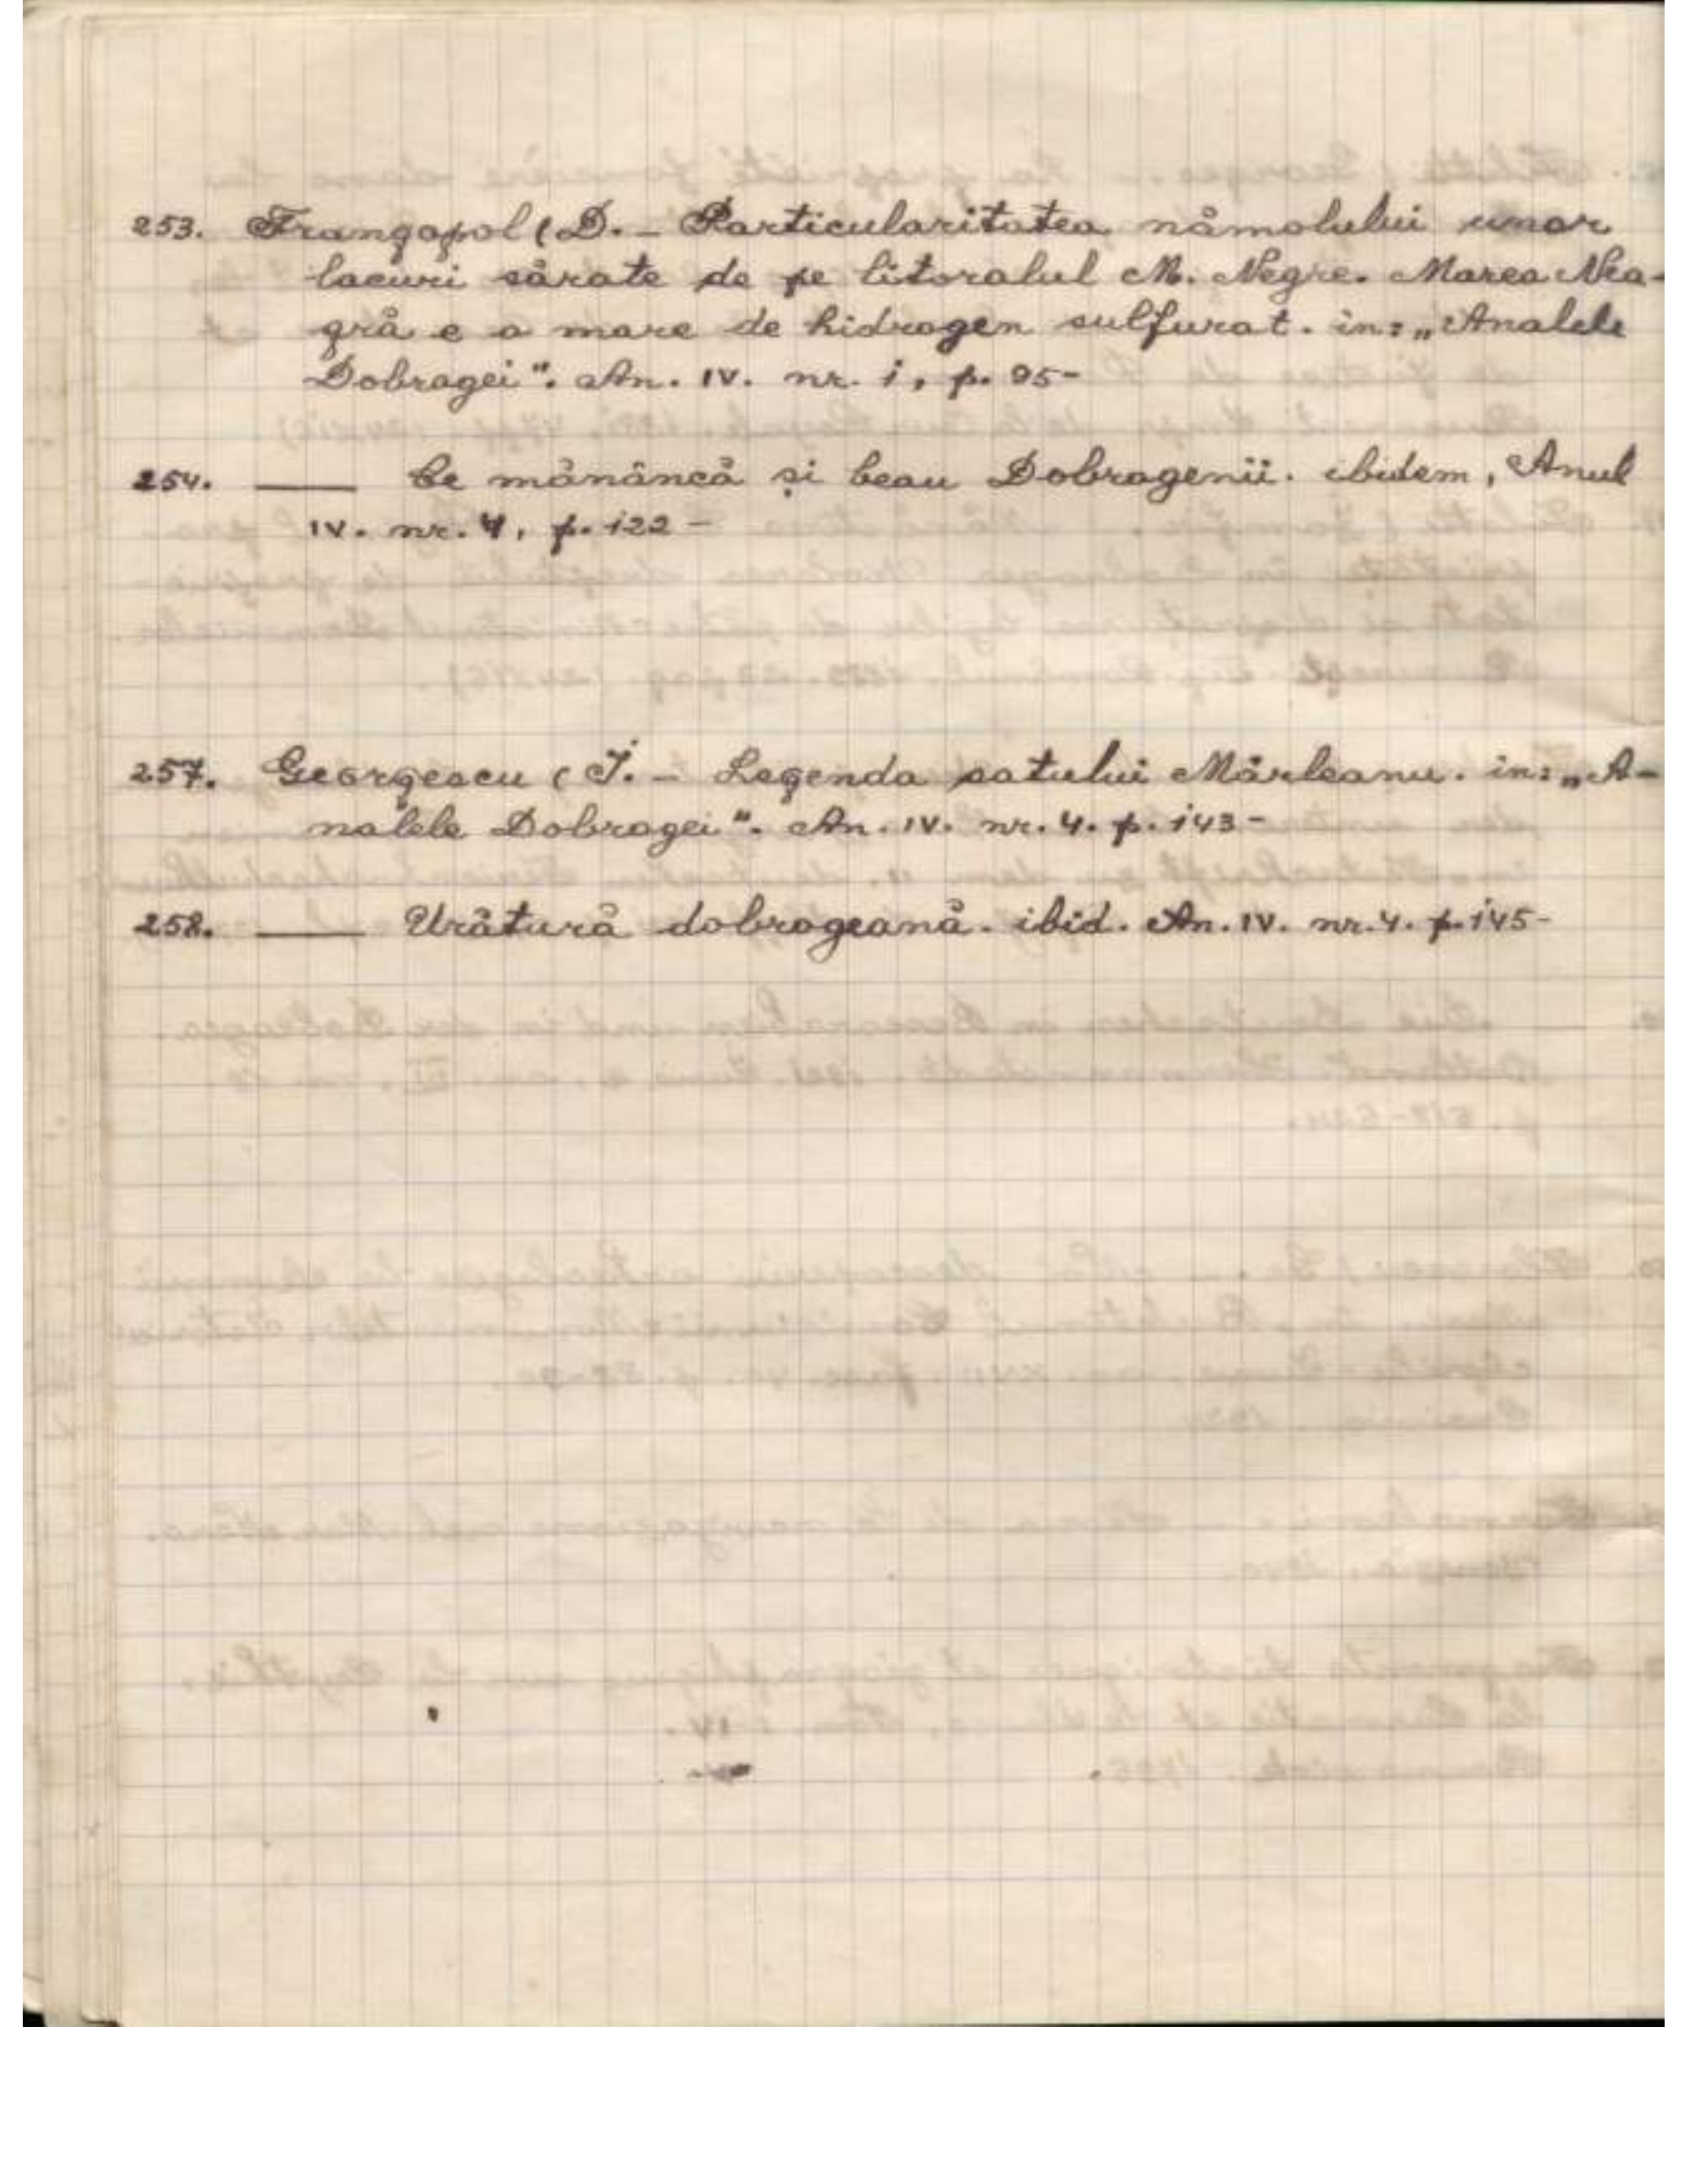 253. Frangopol (D. – Particularitatea nămolului unor
lacuri sărate de pe litoralul M. Negre. Marea Nea-
gră e o mare de hidrogen sulfurat. in: „Analele
Dobrogei". An. IV. nr. 1, p. 95-
254. —— Ce mănâncă și beau Dobrogenii. ibidem, Anul
IV. nr. 4, p. 122 –
257. Georgescu (I. – Legenda satului Mârleanu. in: „A-
nalele Dobrogei". An. IV. nr. 4. p. 143-
258. —— Urătură dobrogeană. ibid. An. IV. nr. 4. p. 145-